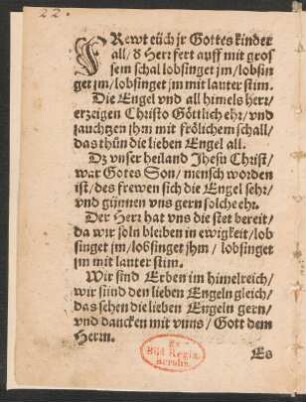 22.
FRewt eüch jr Gottes kinder
all/ d̕ Herr fert auff mit gros
sem schal lobsinget jm/lobsin
get jm/lobsinget jm mit lauter stim.
Die Engel vnd all himels herr/
erzeigen Christo Göttlich ehr/ vnd
jauchtzen jhm mit frölichem schall/
das thün die lieben Engel all.
Dz vnser heiland Jhesu Christ/
war Gotes Son/ mensch worden
ist/des frewen sich die Engel sehr/
vnd günnen vns gern solche ehr.
Der Herr hat vns die stet bereit/
da wir soln bleiben in ewigkeit/lob
singet jm/lobsinget jhm/ lobsinget
jm mit lauter stim.
Wir sind Erben im himelreich/
wir sind den lieben Engeln gleich/
das sehen die lieben Engeln gern/
vnd dancken mit vnns/ Gott dem
Herrn.
Ex
Bibl. Regia
Berolin.
Es